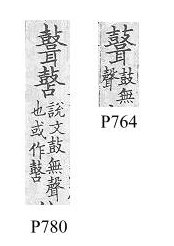 說文鼓無聲
也或作
P780
鼓無
聲
P764